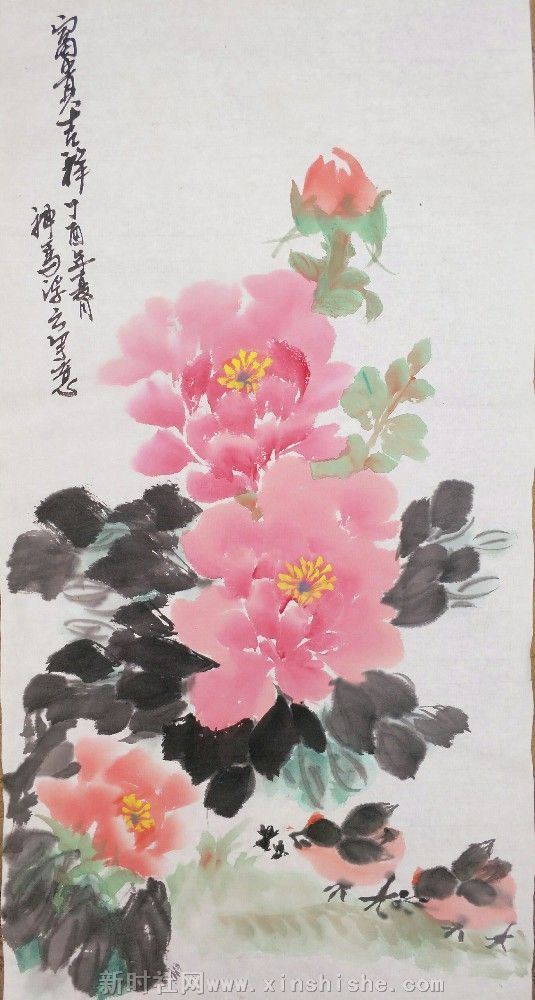 富贵吉祥 丁酉年夏月
神马浮云写意
新时社网 www.xinshishe.com